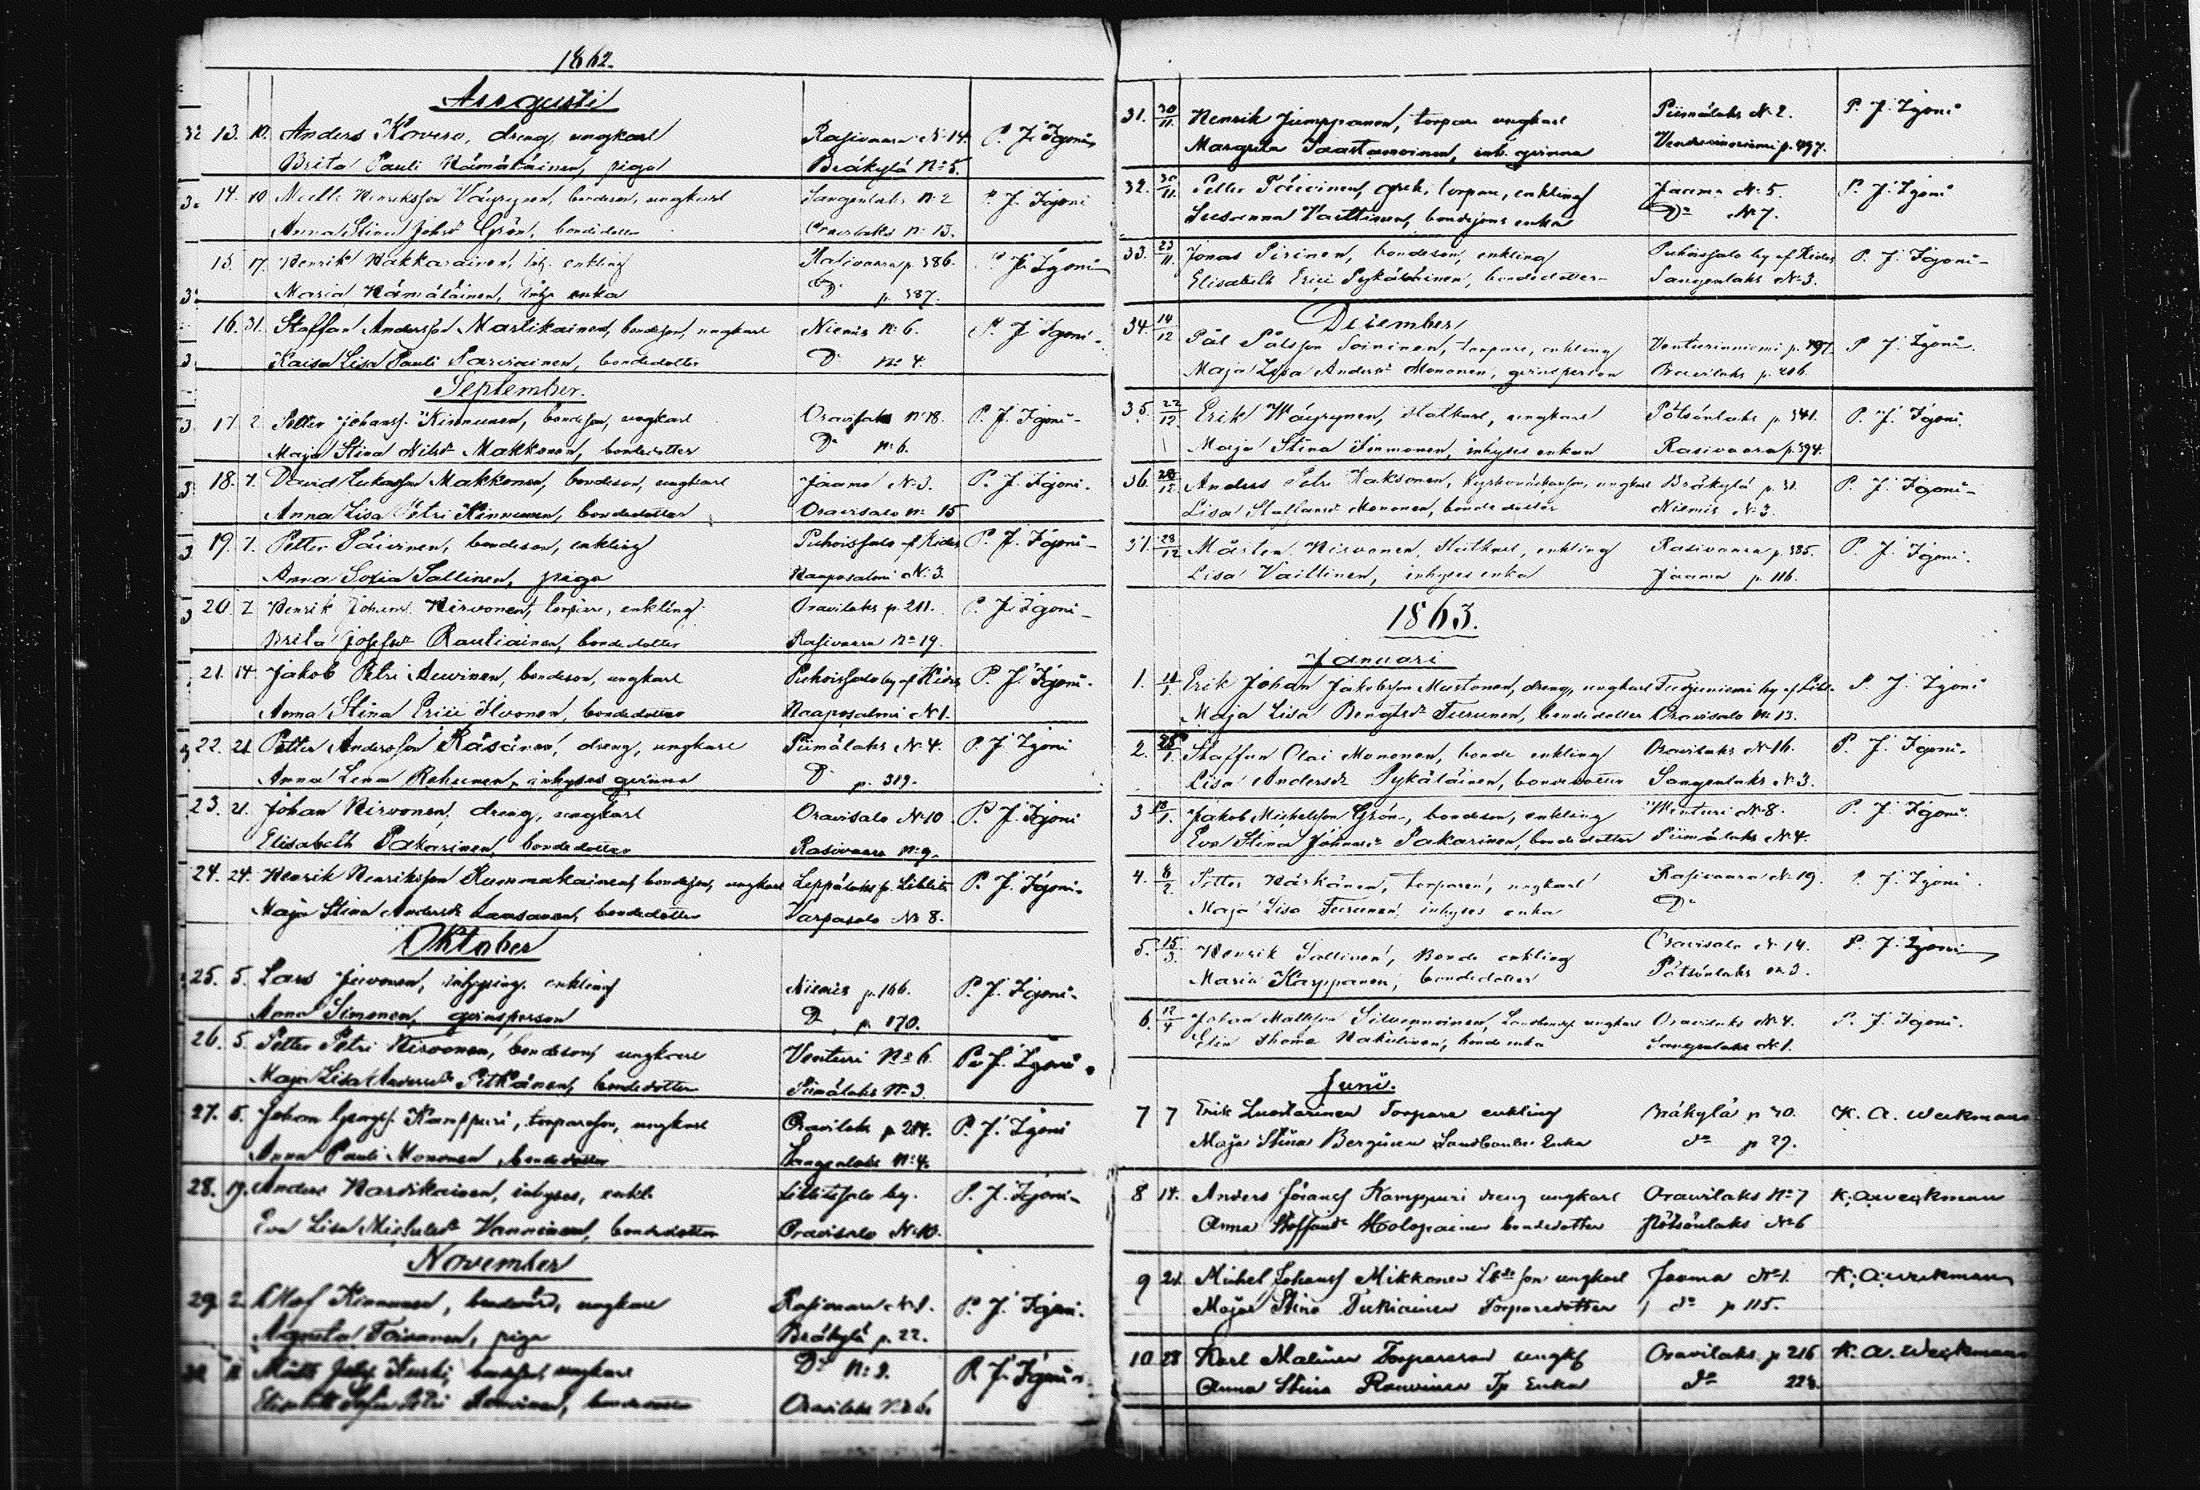 1862.
Augusti
13. 10. Anders Kovero, dreng, ungkarl Rasivaara N:14. P. J. Igoni
Brita Pauli Hämäläinen, piga Bräkylä N:5.
14. 10 Henriksson Väyrynen, bondeson, ungkarl Sangenlaks N:2 P. J. Igoni
Anna Stina Johsdr Grön, bondedotter Oravilaks N: 13.
15. 17. Henrik Hakkarainen, enkling Rasivaara p. 386. P. J. Igoni
Maria Hämäläinen, enka Do p. 387.
16. 31. Staffan Andersson Martikainen, bondeson, ungkarl Niemis N: 6. P. J. Igoni
Kaisa Lisa Pauli Parviainen, bondedotter Do No 4.
September.
17. 2. Petter Johanss. Kinnunen, bondeson, ungkarl Oravisalo N:18. P. J. Igoni
Maja Stina Nilsdr Makkonen, bondedotter Do N:6.
18. 7. David Lukasson Makkonen, bondeson, ungkarl Jaama N:3. P. J. Igoni
Anna Lisa Petri Kinnunen, bondedotter Oravisalo N: 15
19. 7. Petter Päivinen, bondeson, enkling Puhoissalo af Kides P. J. Igoni
Anna Sofia Sallinen, piga Haaposalmi N:3.
20. 7. Henrik Johans. Hirvonen, torpare, enkling Oravilaks p. 211. P. J. Igoni
Brita Josefsdr Rautiainen, bondedotter Rasivaara No 19.
21. 14. Jakob Petri Auvinen, bondeson, ungkarl Puhoissalo by af Kides P. J. Igoni
Anna Stina Erici Ihvonen, bondedotter Haaposalmi N:1.
22. 21. Petter Andersson Räsänen, dreng, ungkarl Piimälaks N:4. P. J. Igoni
Anna Lena Rehunen, inhyses qvinna Do p. 319.
23. 21. Johan Hirvonen, dreng, ungkarl Oravisalo N:10 P. J. Igoni
Elisabeth Pakarinen, bondedotter Rasivaara N:9.
24. 24. Henrik Henriksson Rummakainen, bondeson, ungkarl Leppälaks f. Libelits P. J. Igoni
Maja Stina Andersdr Laasanen, bondedotter Varpasalo No 8.
Oktober
25. 5. Lars Juvonen, inhysing, enkling Niemis p. 166. P. J. Igoni
Anna Simonen, qvinsperson Do p. 170.
26. 5. Petter Petri Hirvonen, bondeson, ungkarl Venturi No 6. P. J. Igoni
Maja Lisa Andersdr Pitkänen, bondedotter Piimälaks N:3.
27. 5. Johan Kamppuri, torpareson, ungkarl Oravilaks p. 284. P. J. Igoni
Anna Pauli Mononen, bondedotter Sangenlaks N:4.
28. 19. Anders Hardikainen, inhyses, enkl. by. P. J. Igoni
Eva Lisa Michelsdr Hanninen, bondedotter Oravisalo N:10.
November
29. 2. Olof Kinnunen, ungkarl Rasivaara N:1. P. J. Igoni
Agneta Toivanen, piga Bräkylä p. 22.
30. Matts Kurki, bondeson, ungkarl Do N:9. P. J. Igoni
Elisabeth Sofia Petri bondedotter Oravilaks No 6.
31. 30/11. Henrik Jumppanen, torpare ungkarl Piimälaks N:2. P. J. Igoni
Margreta Saastamoinen, inh. qvinna p. 497.
32. 30/11. Petter Päivinen, torpare, enkling Jaama N:5 P. J. Igoni
Susanna Vaittinen, bondesons enka Do N:7.
33. 23/11. Jonas Pirinen, bondeson, enkling Puhoissalo by af Kides P. J. Igoni
Elisabeth Erici Pykäläinen, bondedotter Sangenlaks N:3.
December
34. 14/12 Pål Pålsson Soininen, torpare, enkling Venturinniemi p. 497 P. J. Igoni
Maja Lisa Andersdr Mononen, qvinsperson Oravilaks p. 206.
35. 22/12. Erik Väyrynen, statkarl, ungkarl Pötsönlaks p. 341. P. J. Igoni
Maja Stina Immonen, inhyses enkan Rasivaara p. 394.
36. 28/12 Anders Petri Kaksonen, ungkarl Bräkylä p. 31. P. J. Igoni
Lisa Staffansdr Mononen, bondedotter Niemis N:3.
37. 28/12 Mårten Hirvonen, statkarl, enkling Rasivaara p. 385. P. J. Igoni
Lisa Vaittinen, inhyses enka Jaama p. 116.
1863.
Januari
1. Erik Johan Jakobsson Mustonen, dreng, ungkarl by af P. J. Igoni
Maja Lisa Bengtsdr Turunen, bondedotter Oravisalo N: 13.
2. 25/1. Staffan Olai Mononen, bonde enkling Oravilaks N:16. P. J. Igoni
Lisa Andersdr Pykäläinen, bondedotter Sangenlaks N:3.
3 Jakob Michelsson Grön, bondeson, enkling Venturi N:8. P. J. Igoni
Eva Stina Johansdr Pakarinen, bondedotter Piimälaks N:4.
4. 8/2. Petter Härkönen, torpareson, ungkarl Rasivaara N:19. P. J. Igoni
Maja Lisa Turunen, inhyses enka Do
5. 15/3. Henrik Sallinen, Bonde enkling Oravisalo N: 14. P. J. Igoni
Maria Karppanen, bondedotter Pötsönlaks N:3.
6. 12/4 Johan Mattsson Silvennoinen, ungkarl Oravilaks N:4. P. J. Igoni
Elin Thome Nakulinen, bonde enka Sangenlaks N:1.
Junii.
7 7 Erik Luostarinen Torpare enkling Bräkylä p 30. K. A. Weckman
Maja Stina Berginen Landbonde Enka do p 29.
8 14. Anders Johansf Kamppuri dreng ungkarl Oravilaks No 7 K. A. Weckman
Anna Staffansdr Holopainen bondedotter Pötsönlaks No 6
9 21. Michel Johansf Mikkonen son ungkarl Jaama No 1. K. A. Weckman
Maja Stina Tukiainen Torparedotter do p 115.
10 28 Karl Malinen Torpareson ungkf Oravilaks p 216 K. A. Weckman
Anna Stina Rouvinen Tp Enka do 224.